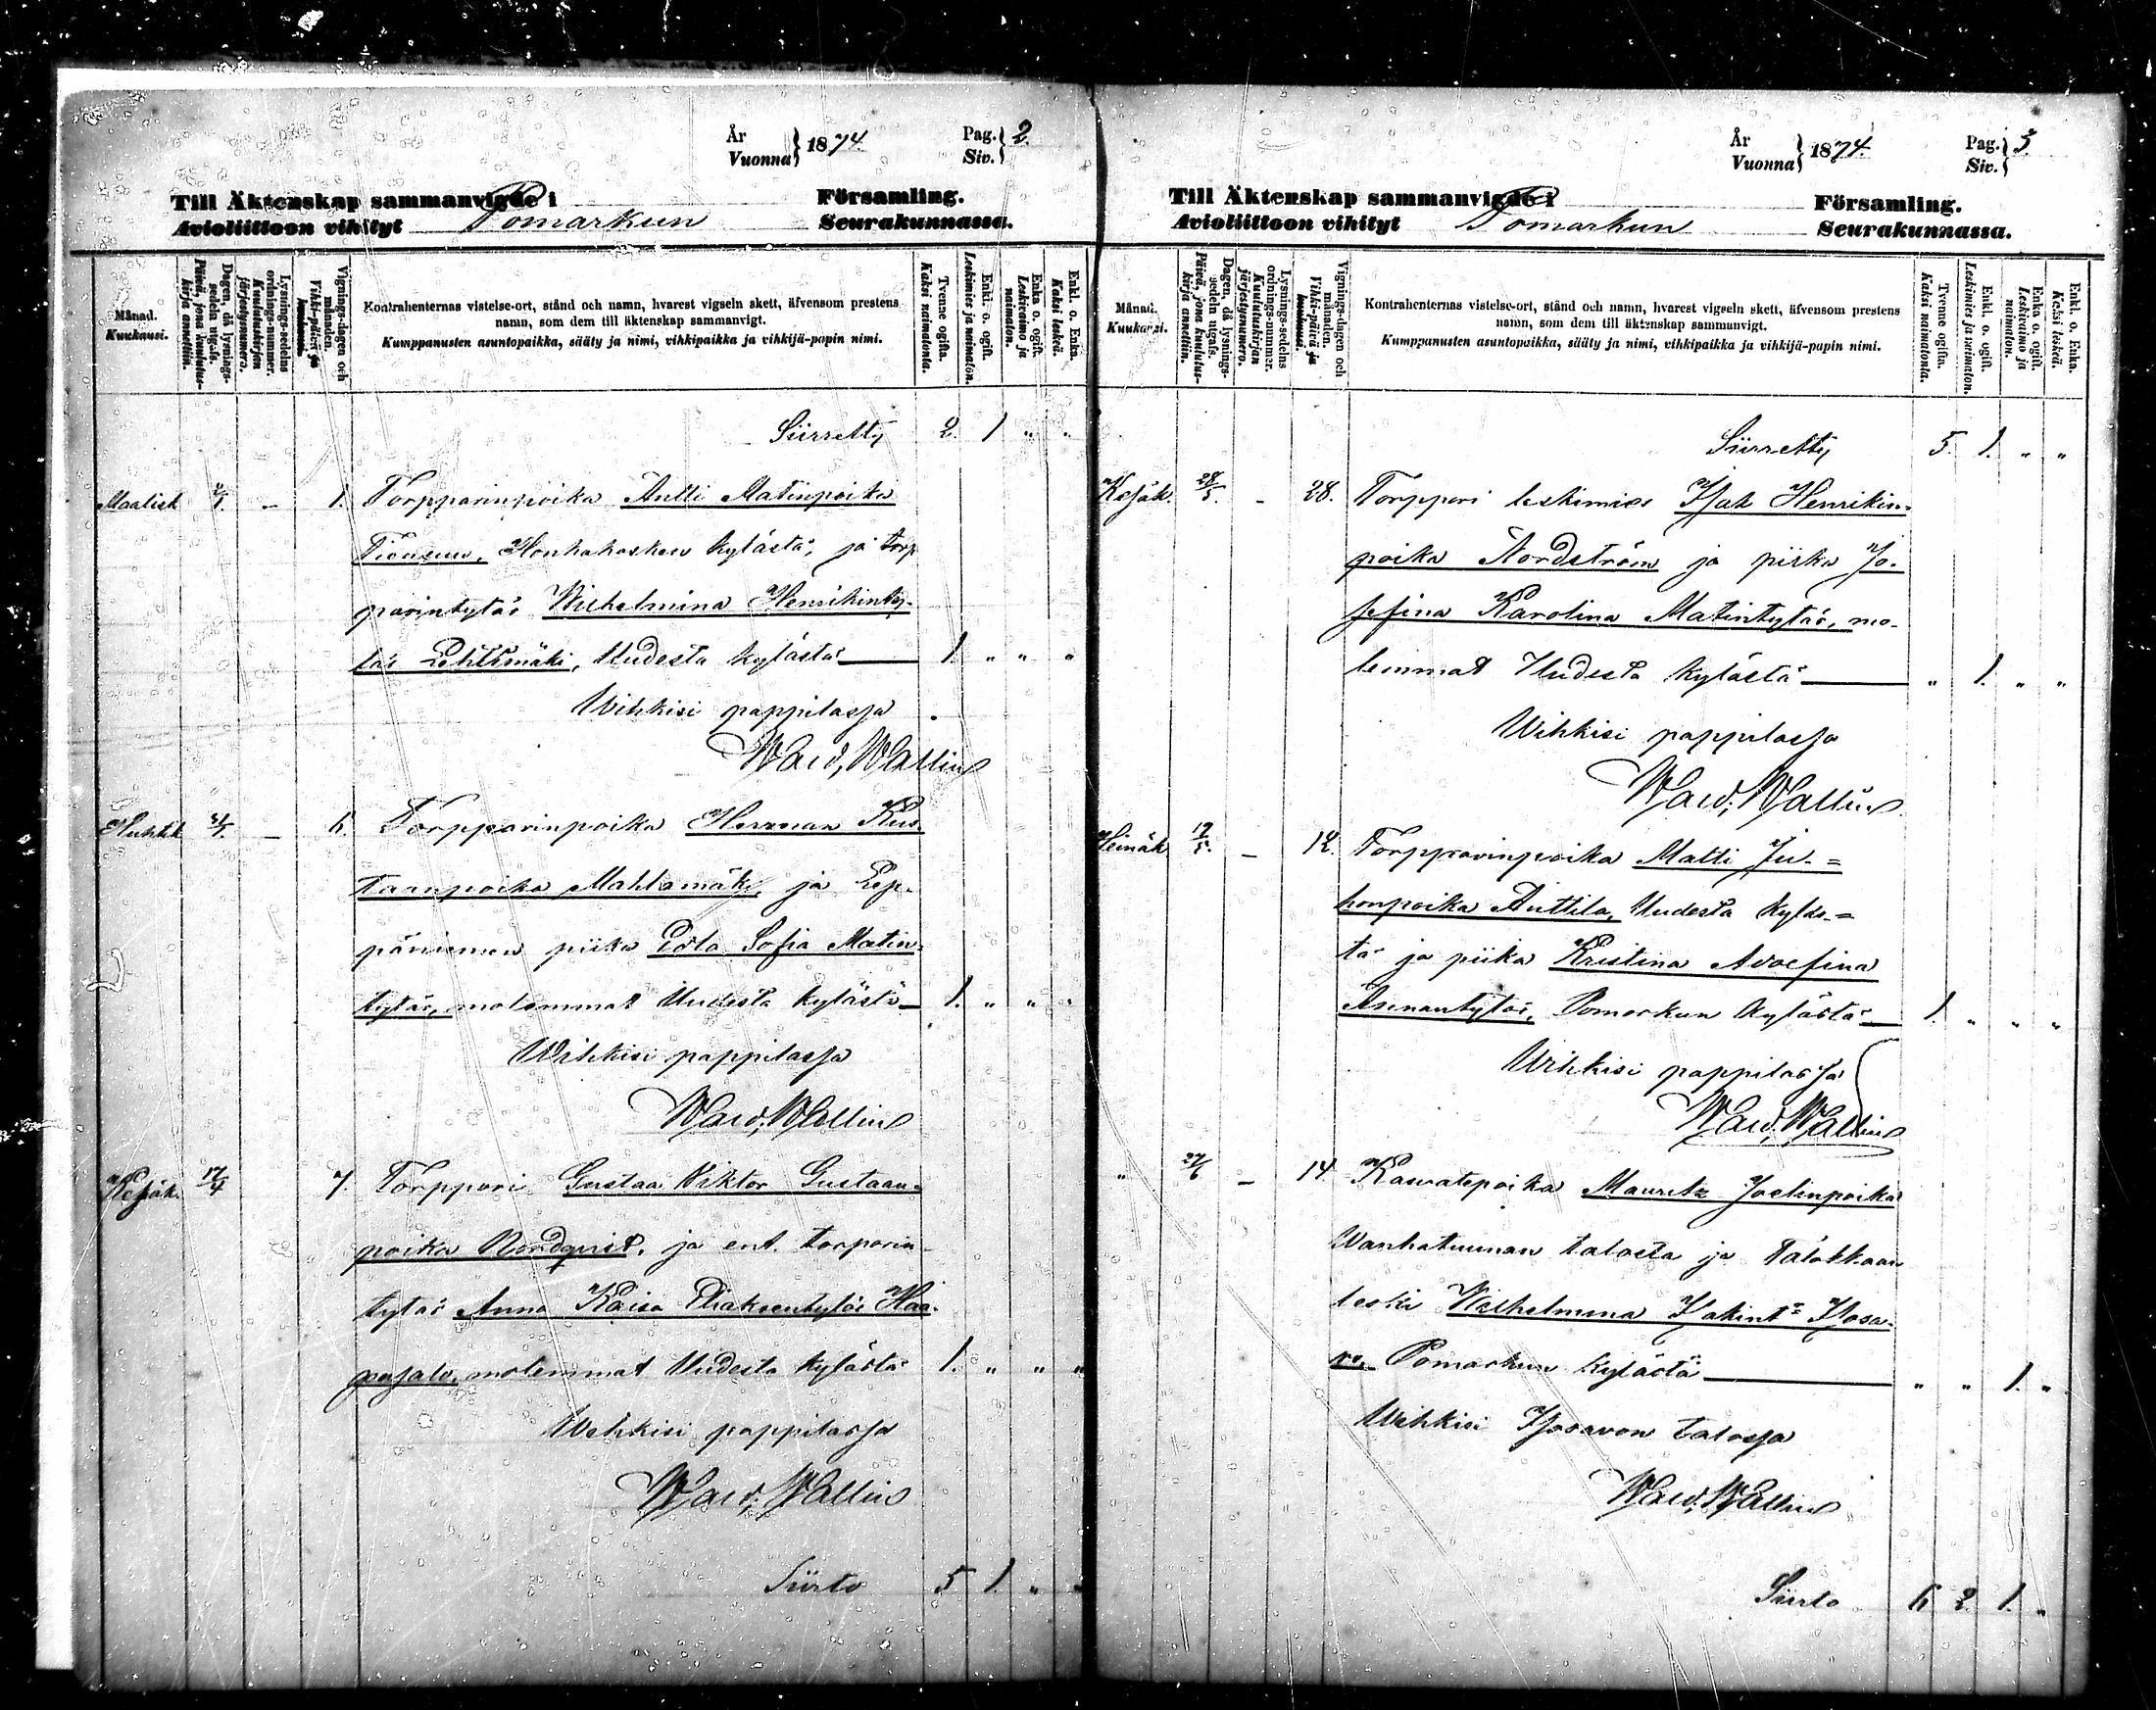 År
Vuonna } 1874. Pag. Siv. } 2.
Till Äktenskap sammanvigde i Församling.
Avioliittoon vihityt Pomarkun Seurakunnassa.
Månad. Kuukausi.
Dagen, då lysnings-sedeln utgafs. Päivä, jona kuulutus-kirja annettiin.
Lysnings-sedelns ordnings-nummer. Kuulutuskirjan järjestysnumero.
Vignings-dagen och månaden. Vihki-päivä ja kuukausi.
Kontrahenternas vistelse-ort, stånd och namn, hvarest vigseln skett, äfvensom prestens
namn, som dem till äktenskap sammanvigt.
Kumppanusten asuntopaikka, sääty ja nimi, vihkipaikka ja vihkijä-papin nimi.
Tvenne ogifta. Kaksi naimatonta.
Enkl. o. ogift. Leskimies ja naimaton.
Enka o. ogift. Leskivaimo ja naimaton.
Enkl. o. Enka. Kaksi leskeä.
Siirretty 2. 1 " "
Maalisk – 1. Torpparinpoika Antti Matinpoika
Honkakosken kylästä, ja torp
parintytär Wilhelmina Henrikinty-
tär Lehtimäki, Uudesta kylästä 1. " " "
Wihkisi pappilassa
Wald. Wallin
Huhtik – 6. Torpparinpoika Herman Kus
taanpoika Mahlamäki, ja Lep-
päniemen piika Eeva Sofia Matin-
tytär, molemmat Uudesta kylästä 1. " " "
Wihkisi pappilassa
Wald. Wallin
Kesäk. 12/4 7. Torppari Gustaa Viktor Gustaan-
poika Nordqvist, ja ent. torparin
tytär Anna Kaisa Eliaksentytär Haa-
pasalo, molemmat Uudesta kylästä 1. " " "
Wihkisi pappilassa
Wald. Wallin
Siirto 5 1. " "
År
Vuonna } 1874. Pag. Siv. } 3.
Till Äktenskap sammanvigde i Församling.
Avioliittoon vihityt Pomarkun Seurakunnassa.
Månad. Kuukausi.
Dagen, då lysnings-sedeln utgafs. Päivä, jona kuulutus-kirja annettiin.
Lysnings-sedelns ordnings-nummer. Kuulutuskirjan järjestysnumero.
Vignings-dagen och månaden. Vihki-päivä ja kuukausi.
Kontrahenternas vistelse-ort, stånd och namn, hvarest vigseln skett, äfvensom prestens
namn, som dem till äktenskap sammanvigt.
Kumppanusten asuntopaikka, sääty ja nimi, vihkipaikka ja vihkijä-papin nimi.
Tvenne ogifta. Kaksi naimatonta.
Enkl. o. ogift. Leskimies ja naimaton.
Enka o. ogift. Leskivaimo ja naimaton.
Enkl. o. Enka. Kaksi leskeä.
Siirretty 5. 1. " "
Kesäk. 28/5. – 28. Torppari leskimies Isak Henrikin-
poika Nordström ja piika Jo-
sefina Karolina Matintytär, mo-
lemmat Uudesta kylästä " 1. " "
Wihkisi pappilassa
Wald. Wallin
Heinäk – 12. Torpparinpoika Matti Ju-=
honpoika Anttila, Uudesta kyläs-=
tä ja piika Kristina Adolfina
Pomarkun kylästä 1. " " "
Wihkisi pappilassa
Wald. Wallin
" 27/6 – 14 Kasvatepoika Mauritz Joelinpoika
Wanhatuunan talosta ja talokkaan
leski Wilhelmina
Pomarkun kylästä " " 1. "
Wihkisi talossa
Wald. Wallin
Siirto 6 2. 1. "